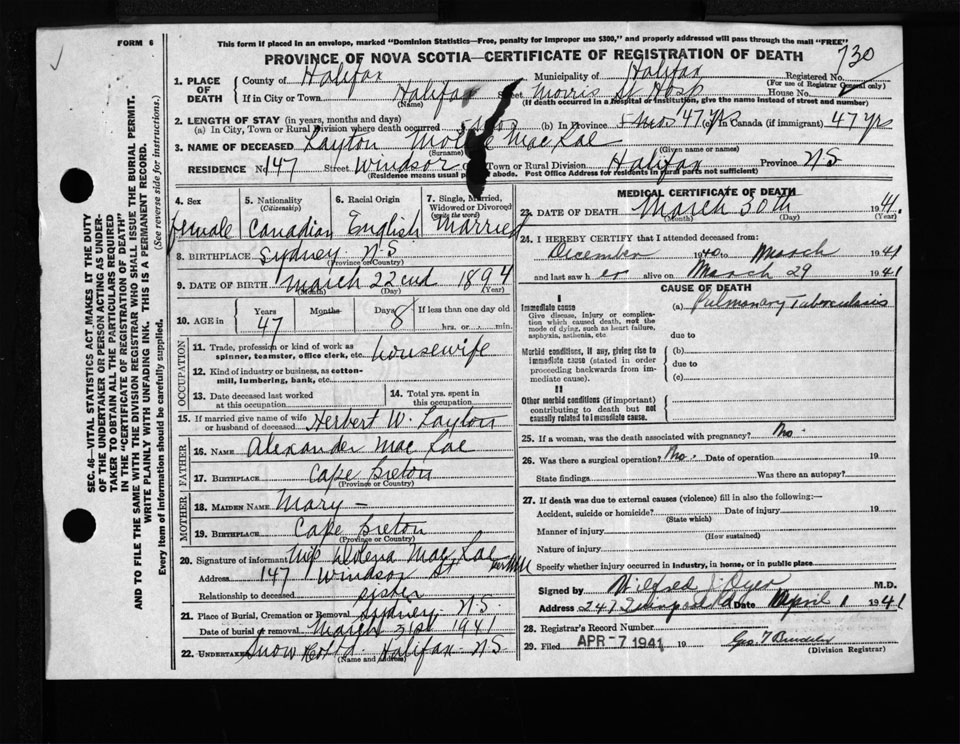 FORM 6
This form if placed in an envelope, marked "Dominion Statistics—Free, penalty for improper use $300," and properly addressed will pass through the mail "FREE"
PROVINCE OF NOVA SCOTIA—CERTIFICATE OF REGISTRATION OF DEATH
730
1. PLACE OF DEATH
County of Halifax Municipality of Halifax Registered No.
(For use of Registrar General only)
If in City or Town Halifax Street Morris St Hosp House No.
(Name) (If death occurred in a hospital or institution, give the name instead of street and number)
2. LENGTH OF STAY (in years, months and days)
(a) In City, Town or Rural Division where death occurred (b) In Province 47 yrs (c) In Canada (if immigrant) 47 yrs
3. NAME OF DECEASED Layton Mac Rae
(Surname) (Given name or names)
RESIDENCE No 147 Street Windsor Town or Rural Division Halifax Province N.S
(Residence means usual place of abode. Post Office Address for residents in rural parts not sufficient)
4. Sex
female
5. Nationality
(Citizenship)
Canadian
6. Racial Origin
English
7. Single, Married, Widowed or Divorced
(write the word)
Married
8. BIRTHPLACE Sydney N.S.
(Province or Country)
9. DATE OF BIRTH March 22nd 1894
(Month) (Day) (Year)
10. AGE in
Years Months Days If less than one day old
47 8 hrs. or min.
OCCUPATION
11. Trade, profession or kind of work as spinner, teamster, office clerk, etc. housewife
12. Kind of industry or business, as cotton-mill, lumbering, bank, etc.
13. Date deceased last worked at this occupation
14. Total yrs. spent in this occupation
15. If married give name of wife or husband of deceased Herbert W. Layton
FATHER
16. NAME Alexander Mac Rae
17. BIRTHPLACE Cape Breton
(Province or Country)
MOTHER
18. MAIDEN NAME Mary —
19. BIRTHPLACE Cape Breton
(Province or Country)
20. Signature of informant Mac Rae
Address 147 Windsor St
Relationship to deceased sister
21. Place of Burial, Cremation or Removal Sydney N.S.
Date of burial or removal March 31st 1941
22. UNDERTAKER Snow Co Ltd. Halifax N.S
(Name and address)
MEDICAL CERTIFICATE OF DEATH
23. DATE OF DEATH March 30th 1941.
(Month) (Day) (Year)
24. I HEREBY CERTIFY that I attended deceased from:
December 1940 to March 1941
and last saw her alive on March 29 1941
CAUSE OF DEATH
I
Immediate cause
Give disease, injury or complication which caused death, not the mode of dying, such as heart failure, asphyxia, asthenia, etc.
(a) Pulmonary Tuberculosis
due to
Morbid conditions, if any, giving rise to immediate cause (stated in order proceeding backwards from immediate cause).
(b)
due to
(c)
II
Other morbid conditions (if important) contributing to death but not causally related to immediate cause.
25. If a woman, was the death associated with pregnancy? No.
26. Was there a surgical operation? No. Date of operation 19
State findings Was there an autopsy?
27. If death was due to external causes (violence) fill in also the following:—
Accident, suicide or homicide? Date of injury 19
(State which)
Manner of injury
(How sustained)
Nature of injury
Specify whether injury occurred in industry, in home, or in public place
Signed by Wilfred J. Dyer M.D.
Address 247 Date April 1 1941
28. Registrar's Record Number
29. Filed APR - 7 1941 19
(Division Registrar)
SEC. 46—VITAL STATISTICS ACT MAKES IT THE DUTY OF THE UNDERTAKER OR PERSON ACTING AS UNDERTAKER TO OBTAIN ALL THE PARTICULARS REQUIRED IN THE "CERTIFICATE OF REGISTRATION OF DEATH" AND TO FILE THE SAME WITH THE DIVISION REGISTRAR WHO SHALL ISSUE THE BURIAL PERMIT.
WRITE PLAINLY WITH UNFADING INK. THIS IS A PERMANENT RECORD.
Every item of information should be carefully supplied. (See reverse side for instructions.)